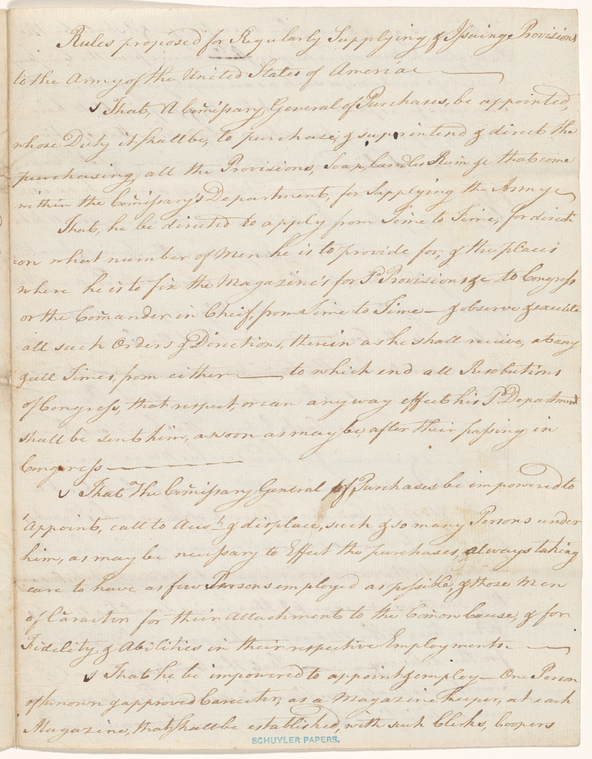 Rules proposed for Regularly Supplying, & Issuinge Provisions
to the Army of the United States of America
That, A Comissary General of Purchases, be appointed,
whose Duty it shall be, to purchase, & superintend & direct the
purchasing, all the Provisions, Soap, Candles Rum &c that come
within the Comissary's Department, for Supplying the Army
That, he be directed to apply from Time to Time, for directi-
on what number of Men he is to provide for, & the places
where he is to fix the Magazine's for Sd Provisions &c to Congress
or the Comander in Chief, from Time to Time — & observe & execute
all such Orders & Directions, therein as he shall recive, at any
& all Times, from either — to which end all Resolutions
of Congress, that respect, or can any way effect his Sd Department
shall be sent him, as soon as may be, after their passing in
Congress
That The Comissary General of Purchases be impowered to
Appoint, call to Acct. & displace, such & so many Persons under
him, as may be necissary to Effect the purchases, always taking
care to have as few Persons employed as possible, & those Men
of Caracter for their Attachment to the Comon Cause, & for
Fidelity, & Abilities in their respective Employments
That he be impowered to appoint & employ — One Person
of known & approved Carecter, as a Magazine keeper, at each
Magazine, that shall be established, with such Clerks, Coopers
SCHUYLER PAPERS.